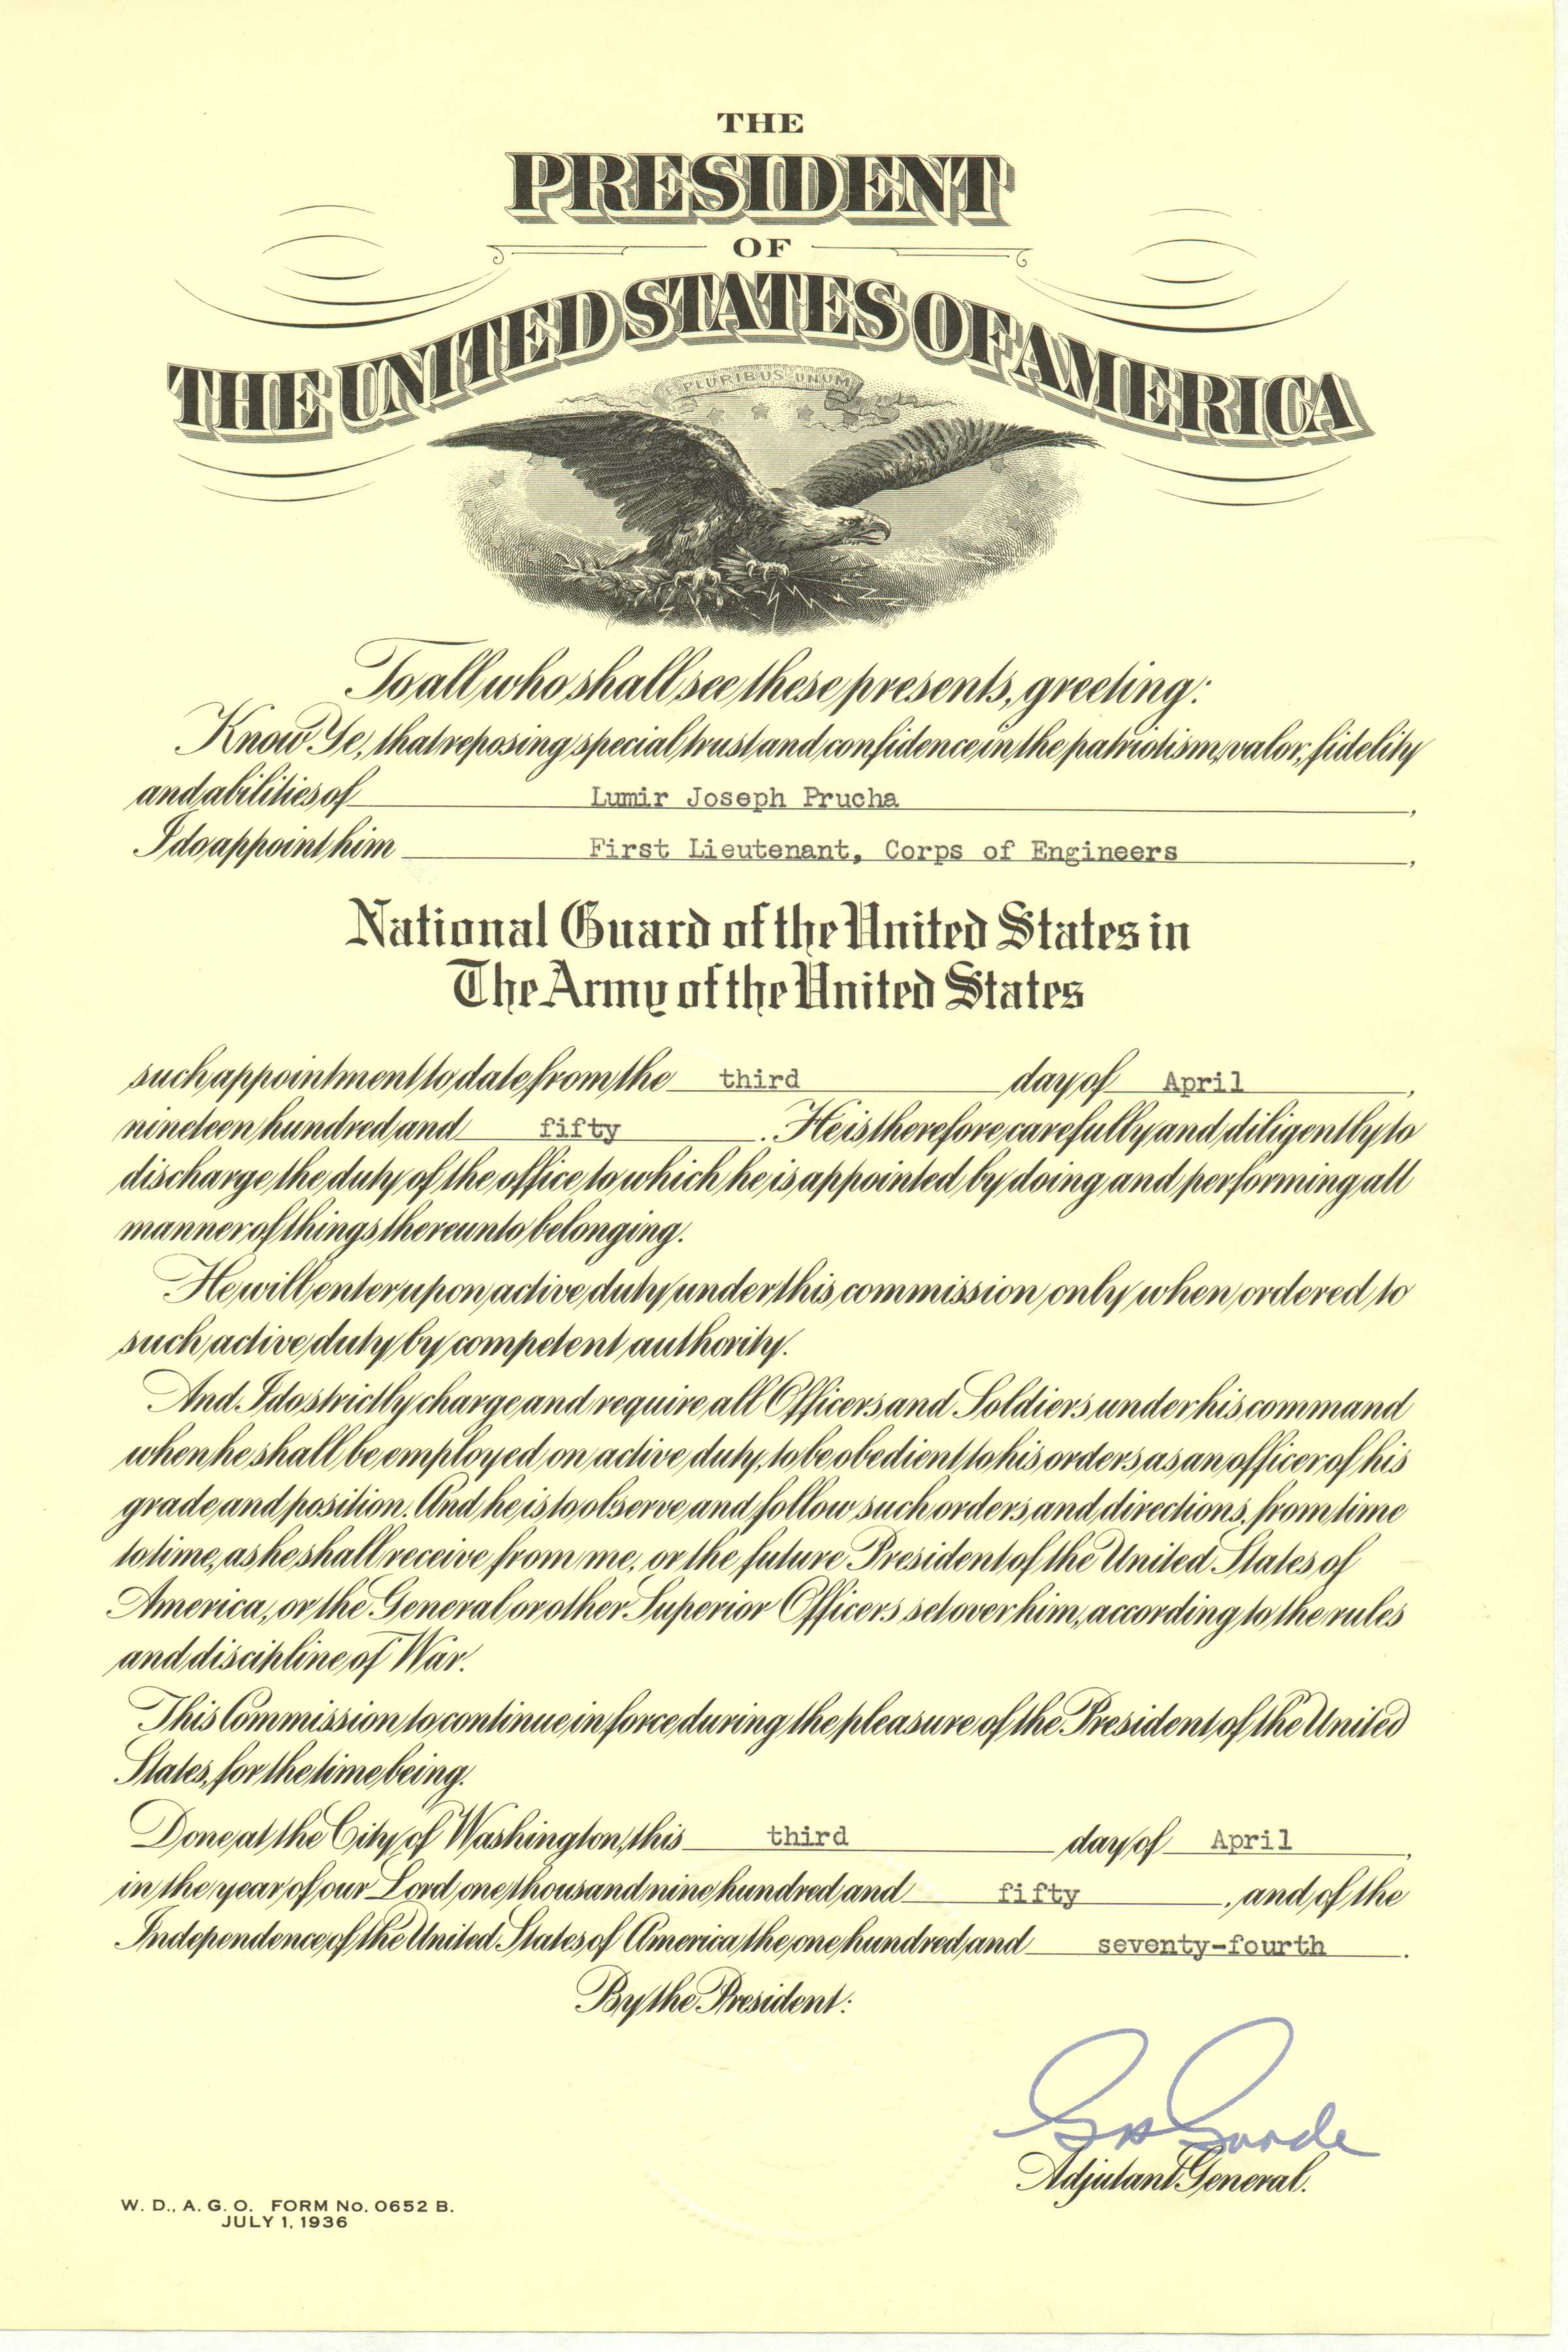 THE
PRESIDENT
OF
THE UNITED STATES OF AMERICA
E PLURIBUS UNUM
To all who shall see these presents, greeting:
Know Ye, that reposing special trust and confidence in the patriotism, valor, fidelity
and abilities of Lumir Joseph Prucha,
I do appoint him First Lieutenant, Corps of Engineers,
National Guard of the United States in
The Army of the United States
such appointment to date from the third day of April,
nineteen hundred and fifty. He is therefore carefully and diligently to
discharge the duty of the office to which he is appointed by doing and performing all
manner of things thereunto belonging.
He will enter upon active duty under this commission only when ordered to
such active duty by competent authority.
And I do strictly charge and require all Officers and Soldiers under his command
when he shall be employed on active duty, to be obedient to his orders as an officer of his
grade and position. And he is to observe and follow such orders and directions, from time
to time, as he shall receive from me, or the future President of the United States of
America, or the General or other Superior Officers set over him, according to the rules
and discipline of War.
This Commission to continue in force during the pleasure of the President of the United
States, for the time being.
Done at the City of Washington, this third day of April,
in the year of our Lord one thousand nine hundred and fifty, and of the
Independence of the United States of America the one hundred and seventy-fourth.
By the President:
Adjutant General.
W. D., A. G. O. FORM No. 0652 B.
JULY 1, 1936